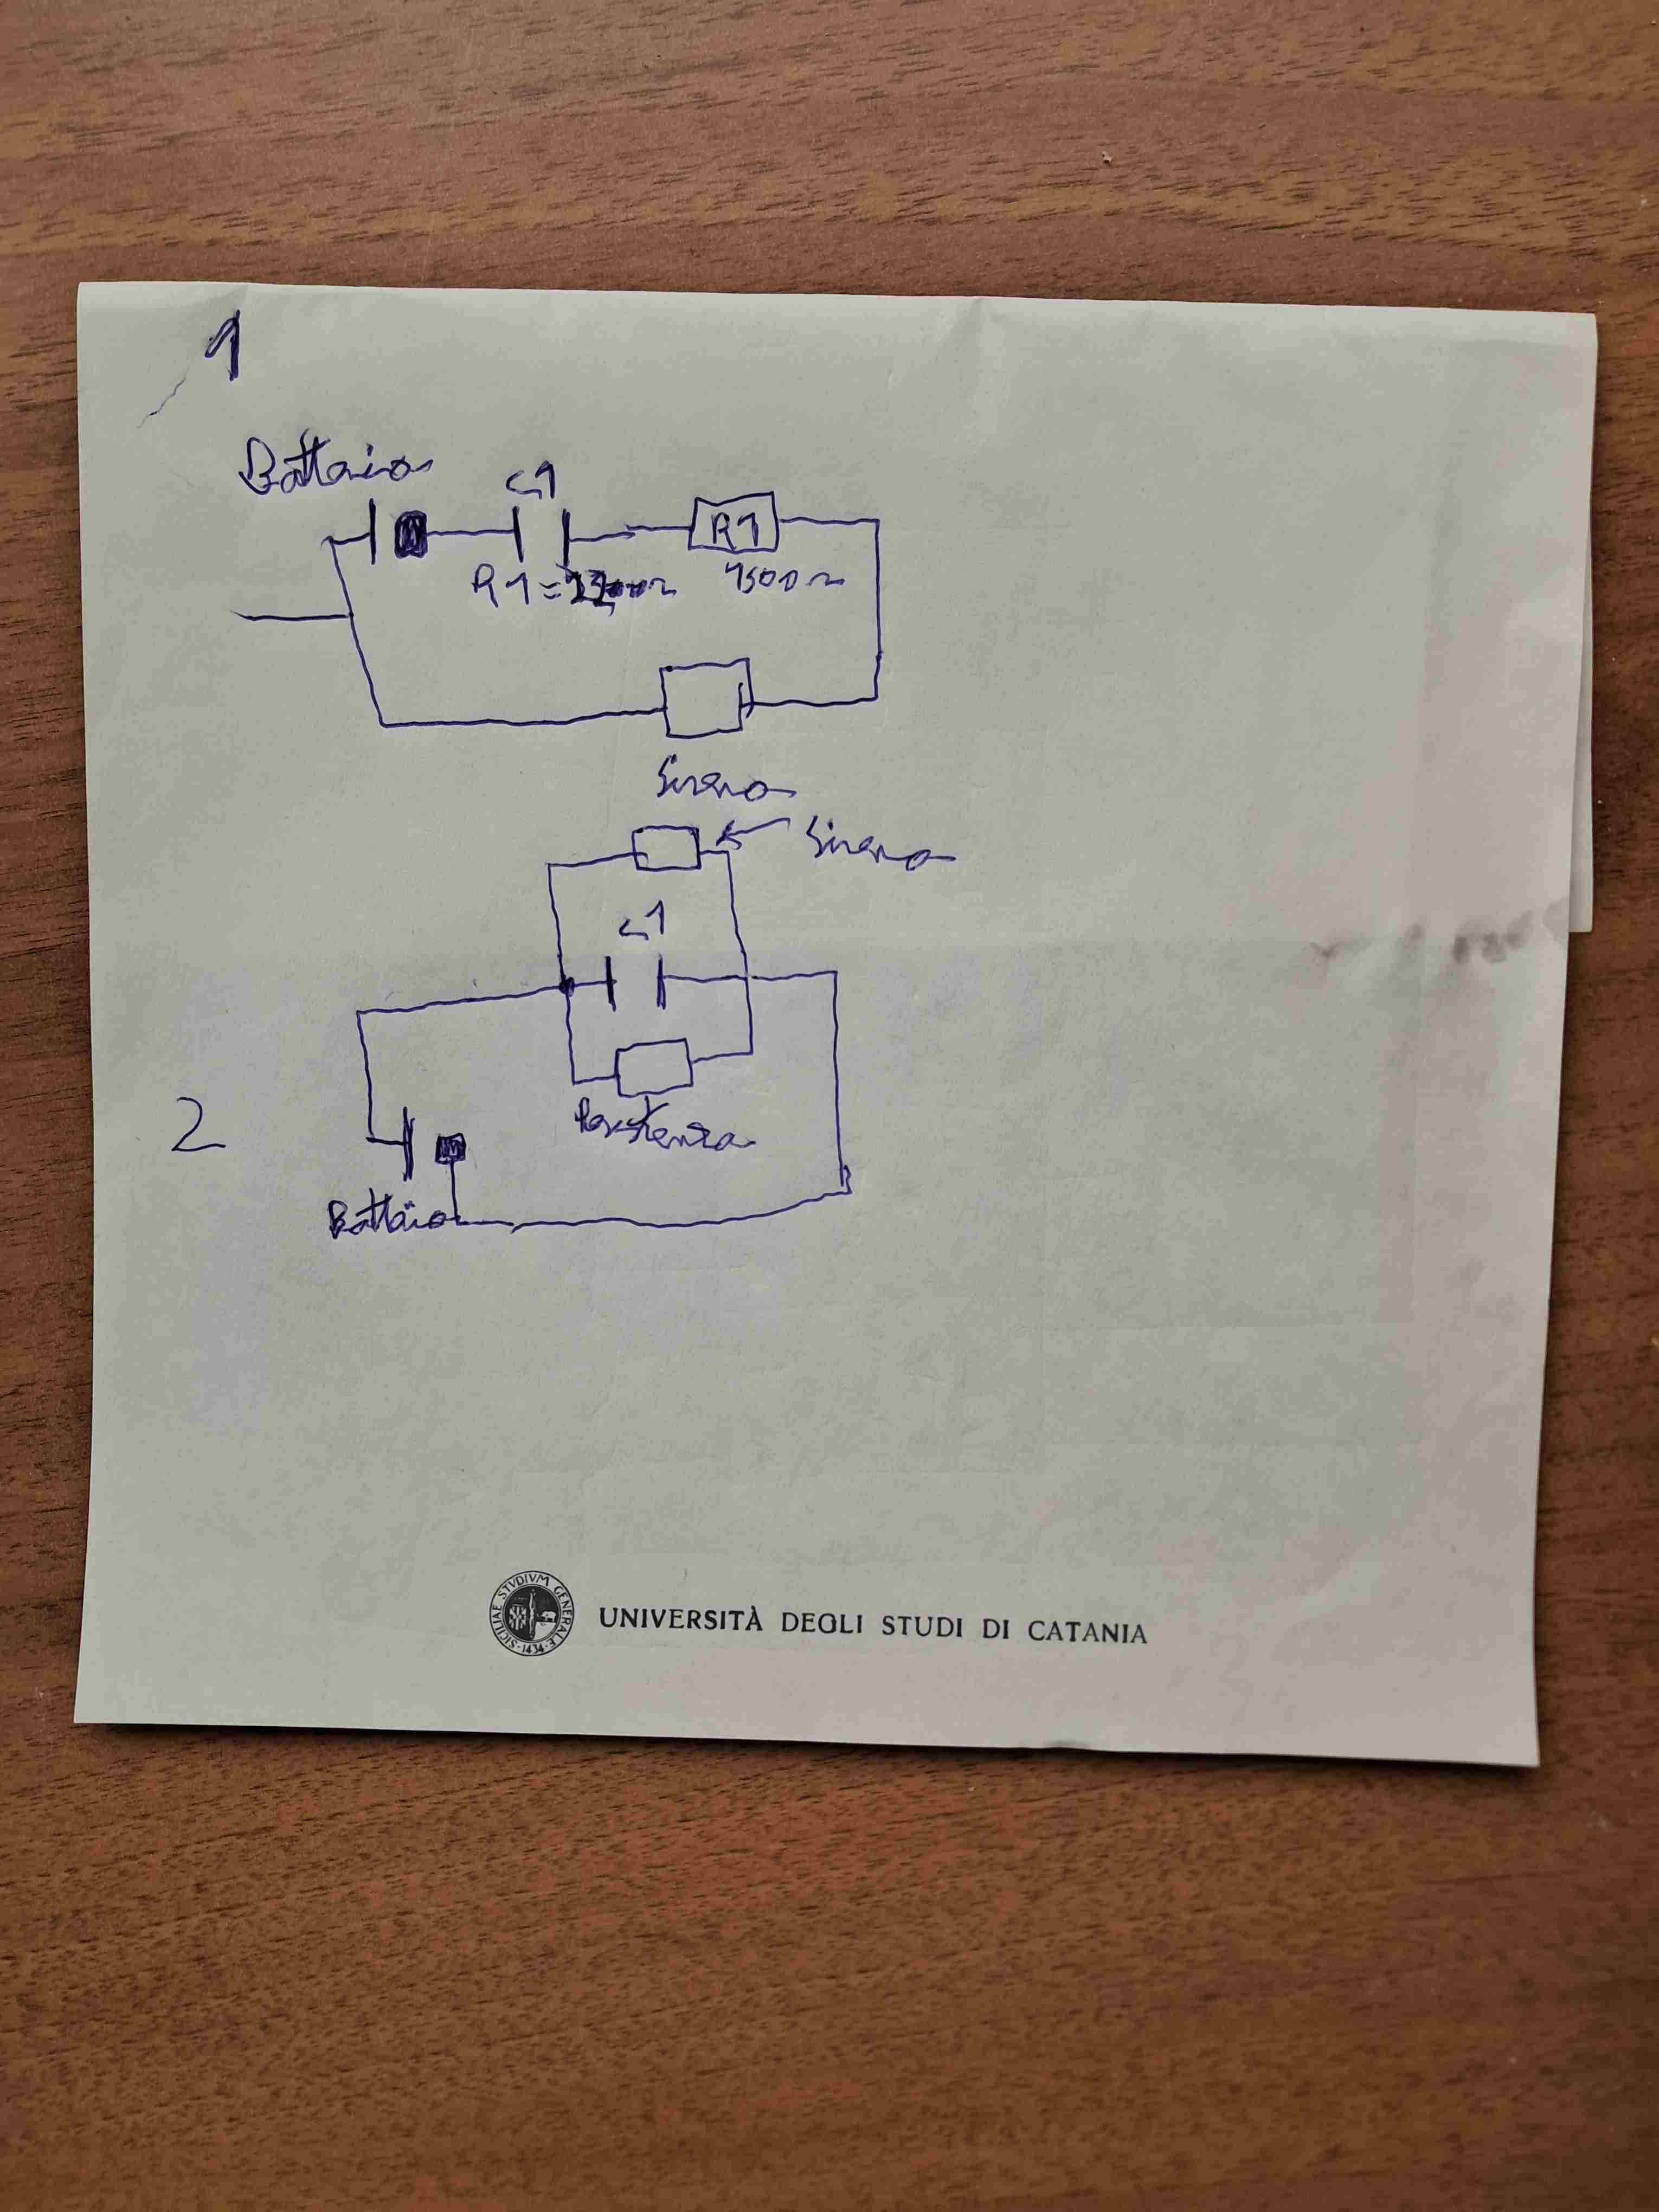 1
Battaria
C1
R1
R1=
1500 Ω
Sirena
Sirena
C1
2
Resistenza
Battaria
SICILIAE STVDIVM GENERALE 1434
UNIVERSITÀ DEGLI STUDI DI CATANIA